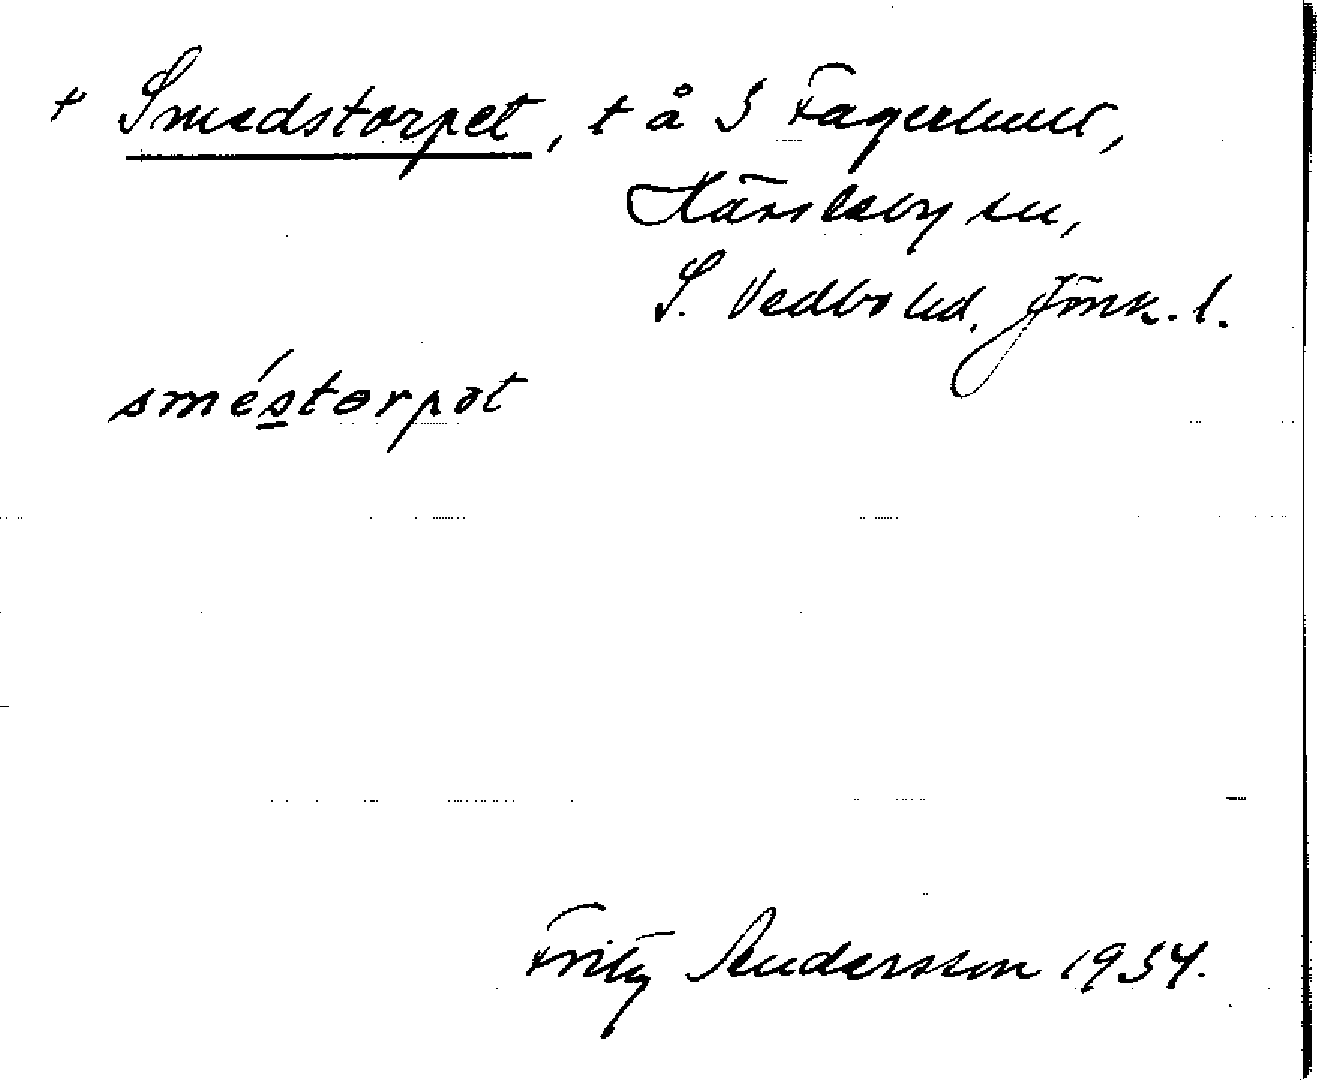 + Smedstorpet, t å S Fagerhult,
Hässleby sn,
S. Vedbo hd, Jönk. l.
sméstorpət
Fritz Andersson 1934.